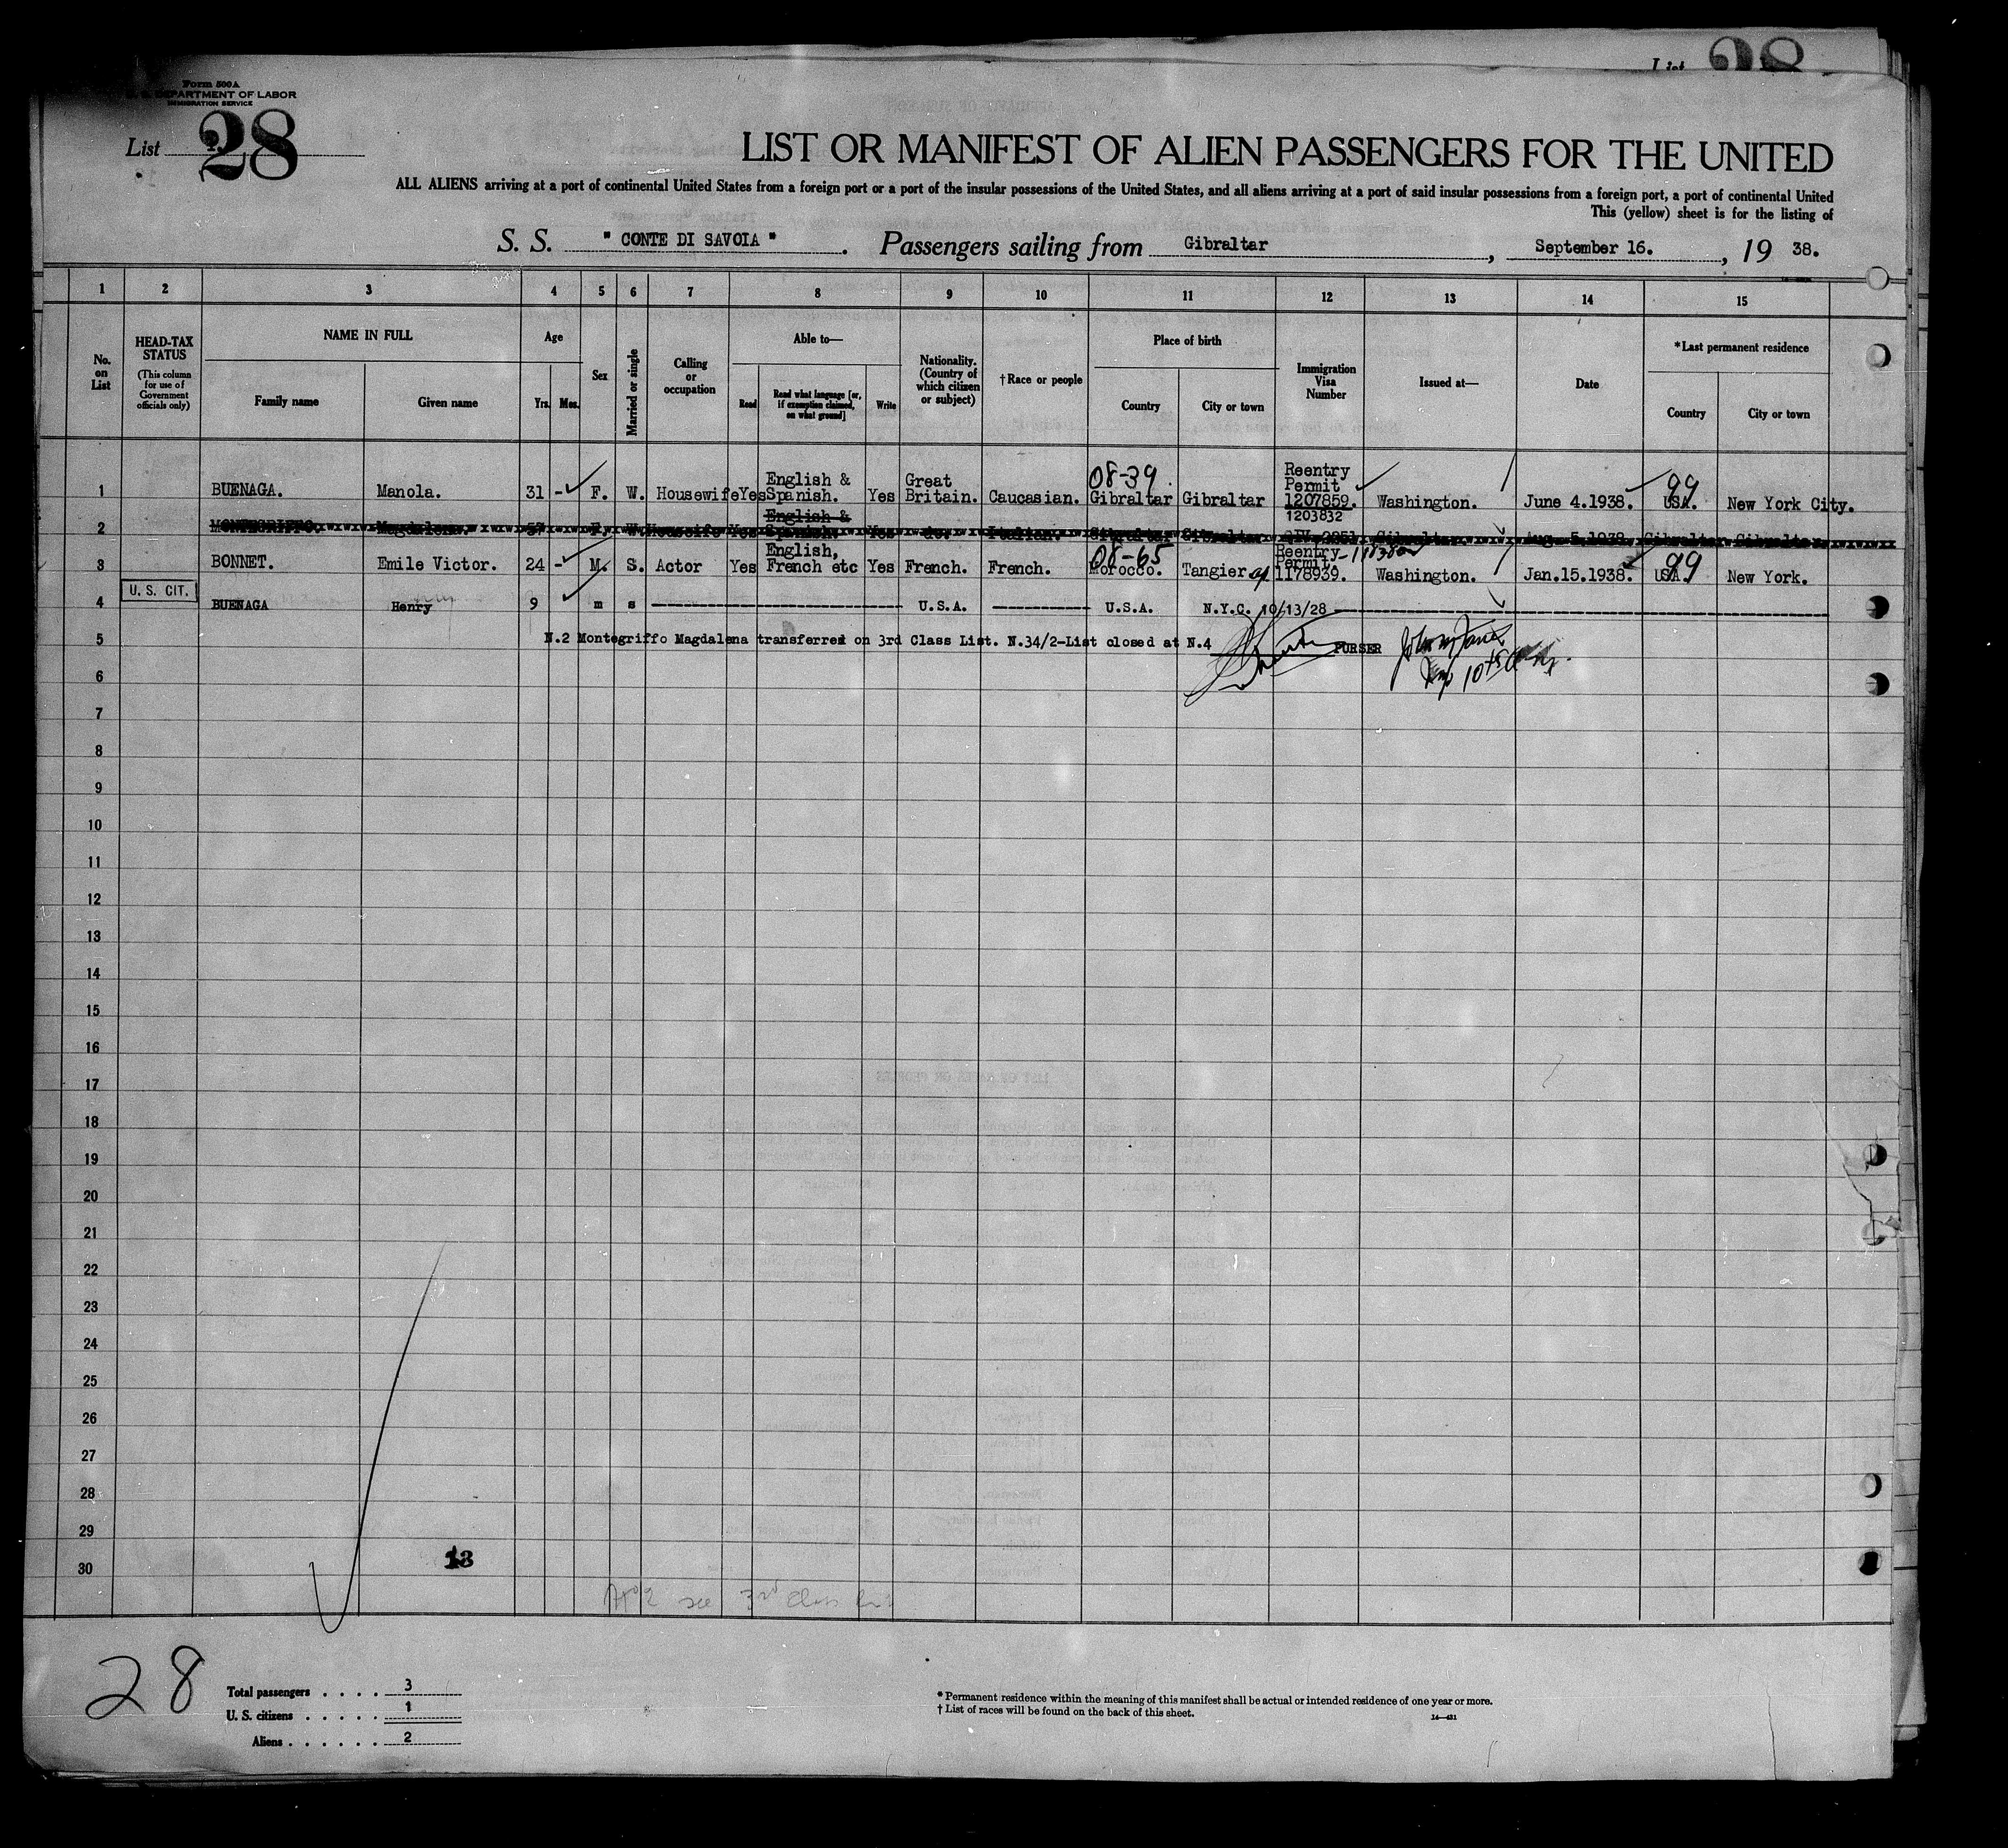 List 28
Form 500A
DEPARTMENT OF LABOR
IMMIGRATION SERVICE
List 28
LIST OR MANIFEST OF ALIEN PASSENGERS FOR THE UNITED
ALL ALIENS arriving at a port of continental United States from a foreign port or a port of the insular possessions of the United States, and all aliens arriving at a port of said insular possessions from a foreign port, a port of continental United
This (yellow) sheet is for the listing of
S. S. " CONTE DI SAVOIA ". Passengers sailing from Gibraltar, September 16., 19 38.
1 2 3 4 5 6 7 8 9 10 11 12 13 14 15
No. on List
HEAD-TAX STATUS
(This column for use of Government officials only)
NAME IN FULL
Family name Given name
Age
Yrs. Mos.
Sex
Married or single
Calling or occupation
Able to—
Read Read what language [or, if exemption claimed, on what ground] Write
Nationality. (Country of which citizen or subject)
†Race or people
Place of birth
Country City or town
Immigration Visa Number
Issued at—
Date
*Last permanent residence
Country City or town
1 BUENAGA. Manola. 31 - F. W. Housewife Yes English & Spanish. Yes Great Britain. Caucasian. 08-39. Gibraltar Gibraltar Reentry Permit 1207859. Washington. June 4.1938. 99 USA. New York City.
1203832
2 MONTEGRIFFO. Magdalena. 57 F. W. Housewife Yes English & Spanish. Yes do. Italian. Gibraltar Gibraltar Gibraltar. Aug. 5.1938. Gibraltar Gibraltar.
3 BONNET. Emile Victor. 24 - M. S. Actor Yes English, French etc Yes French. French. 08-65 Morocco. Tangier Reentry Permit. 1178939. Washington. Jan.15.1938. 99 USA. New York.
U. S. CIT.
4 BUENAGA Henry 9 m s U.S.A. U.S.A. N.Y.C. 10/13/28
5 N.2 Montegriffo Magdalena transferred on 3rd Class List. N.34/2-List closed at N.4 PURSER
6
7
8
9
10
11
12
13
14
15
16
17
18
19
20
21
22
23
24
25
26
27
28
29
30
13
No 2 see 3rd Class list
28
Total passengers . . . . 3
U. S. citizens . . . . . 1
Aliens . . . . . . 2
* Permanent residence within the meaning of this manifest shall be actual or intended residence of one year or more.
† List of races will be found on the back of this sheet.
14—431